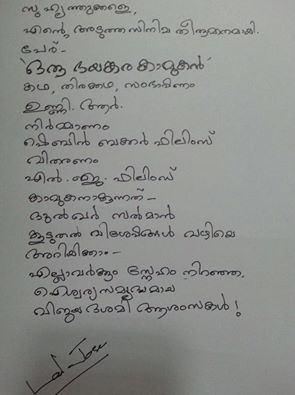 സുഹൃത്തുക്കളെ,
എന്റെ അടുത്ത സിനിമ തീരുമാനമായി.
പേര്-
'ഒരു ഭയങ്കര കാമുകൻ'
കഥ, തിരക്കഥ, സംഭാഷണം
ഉണ്ണി. ആർ.
നിർമ്മാണം
ഷെബിൻ ബക്കർ ഫിലിംസ്
വിതരണം
എൽ. ജെ. ഫിലിംസ്
കാമുകനാകുന്നത് -
ദുൽഖർ സൽമാൻ
കൂടുതൽ വിശേഷങ്ങൾ വഴിയെ
അറിയിക്കാം -
എല്ലാവർക്കും സ്നേഹം നിറഞ്ഞ,
ഐശ്വര്യസമൃദ്ധമായ
വിജയ ദശമി ആശംസകൾ !
Lal Jose